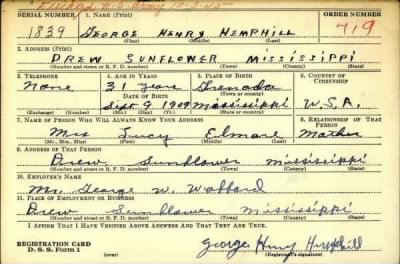 U.S. Army 12-3-45
SERIAL NUMBER 1. NAME (Print) ORDER NUMBER
1839 GEORGE HENRY HEMPHILL 719
(First) (Middle) (Last)
2. ADDRESS (Print)
DREW SUNFLOWER MISSISSIPPI
(Number and street or R. F. D. number) (Town) (County) (State)
3. TELEPHONE 4. AGE IN YEARS 5. PLACE OF BIRTH 6. COUNTRY OF CITIZENSHIP
None 31 years Grenada
DATE OF BIRTH (Town or county)
Sept 9 1909 Mississippi U.S.A.
(Exchange) (Number) (Mo.) (Day) (Yr.) (State or country)
7. NAME OF PERSON WHO WILL ALWAYS KNOW YOUR ADDRESS 8. RELATIONSHIP OF THAT PERSON
Mrs Lucy Elmore Mother
(Mr., Mrs., Miss) (First) (Middle) (Last)
9. ADDRESS OF THAT PERSON
Drew Sunflower Mississippi
(Number and street or R. F. D. number) (Town) (County) (State)
10. EMPLOYER'S NAME
Mr. George W. Wofford
11. PLACE OF EMPLOYMENT OR BUSINESS
Drew Sunflower Mississippi
(Number and street or R. F. D. number) (Town) (County) (State)
I AFFIRM THAT I HAVE VERIFIED ABOVE ANSWERS AND THAT THEY ARE TRUE.
REGISTRATION CARD
D. S. S. Form 1 (over) George Henry Hemphill
(Registrant's signature)